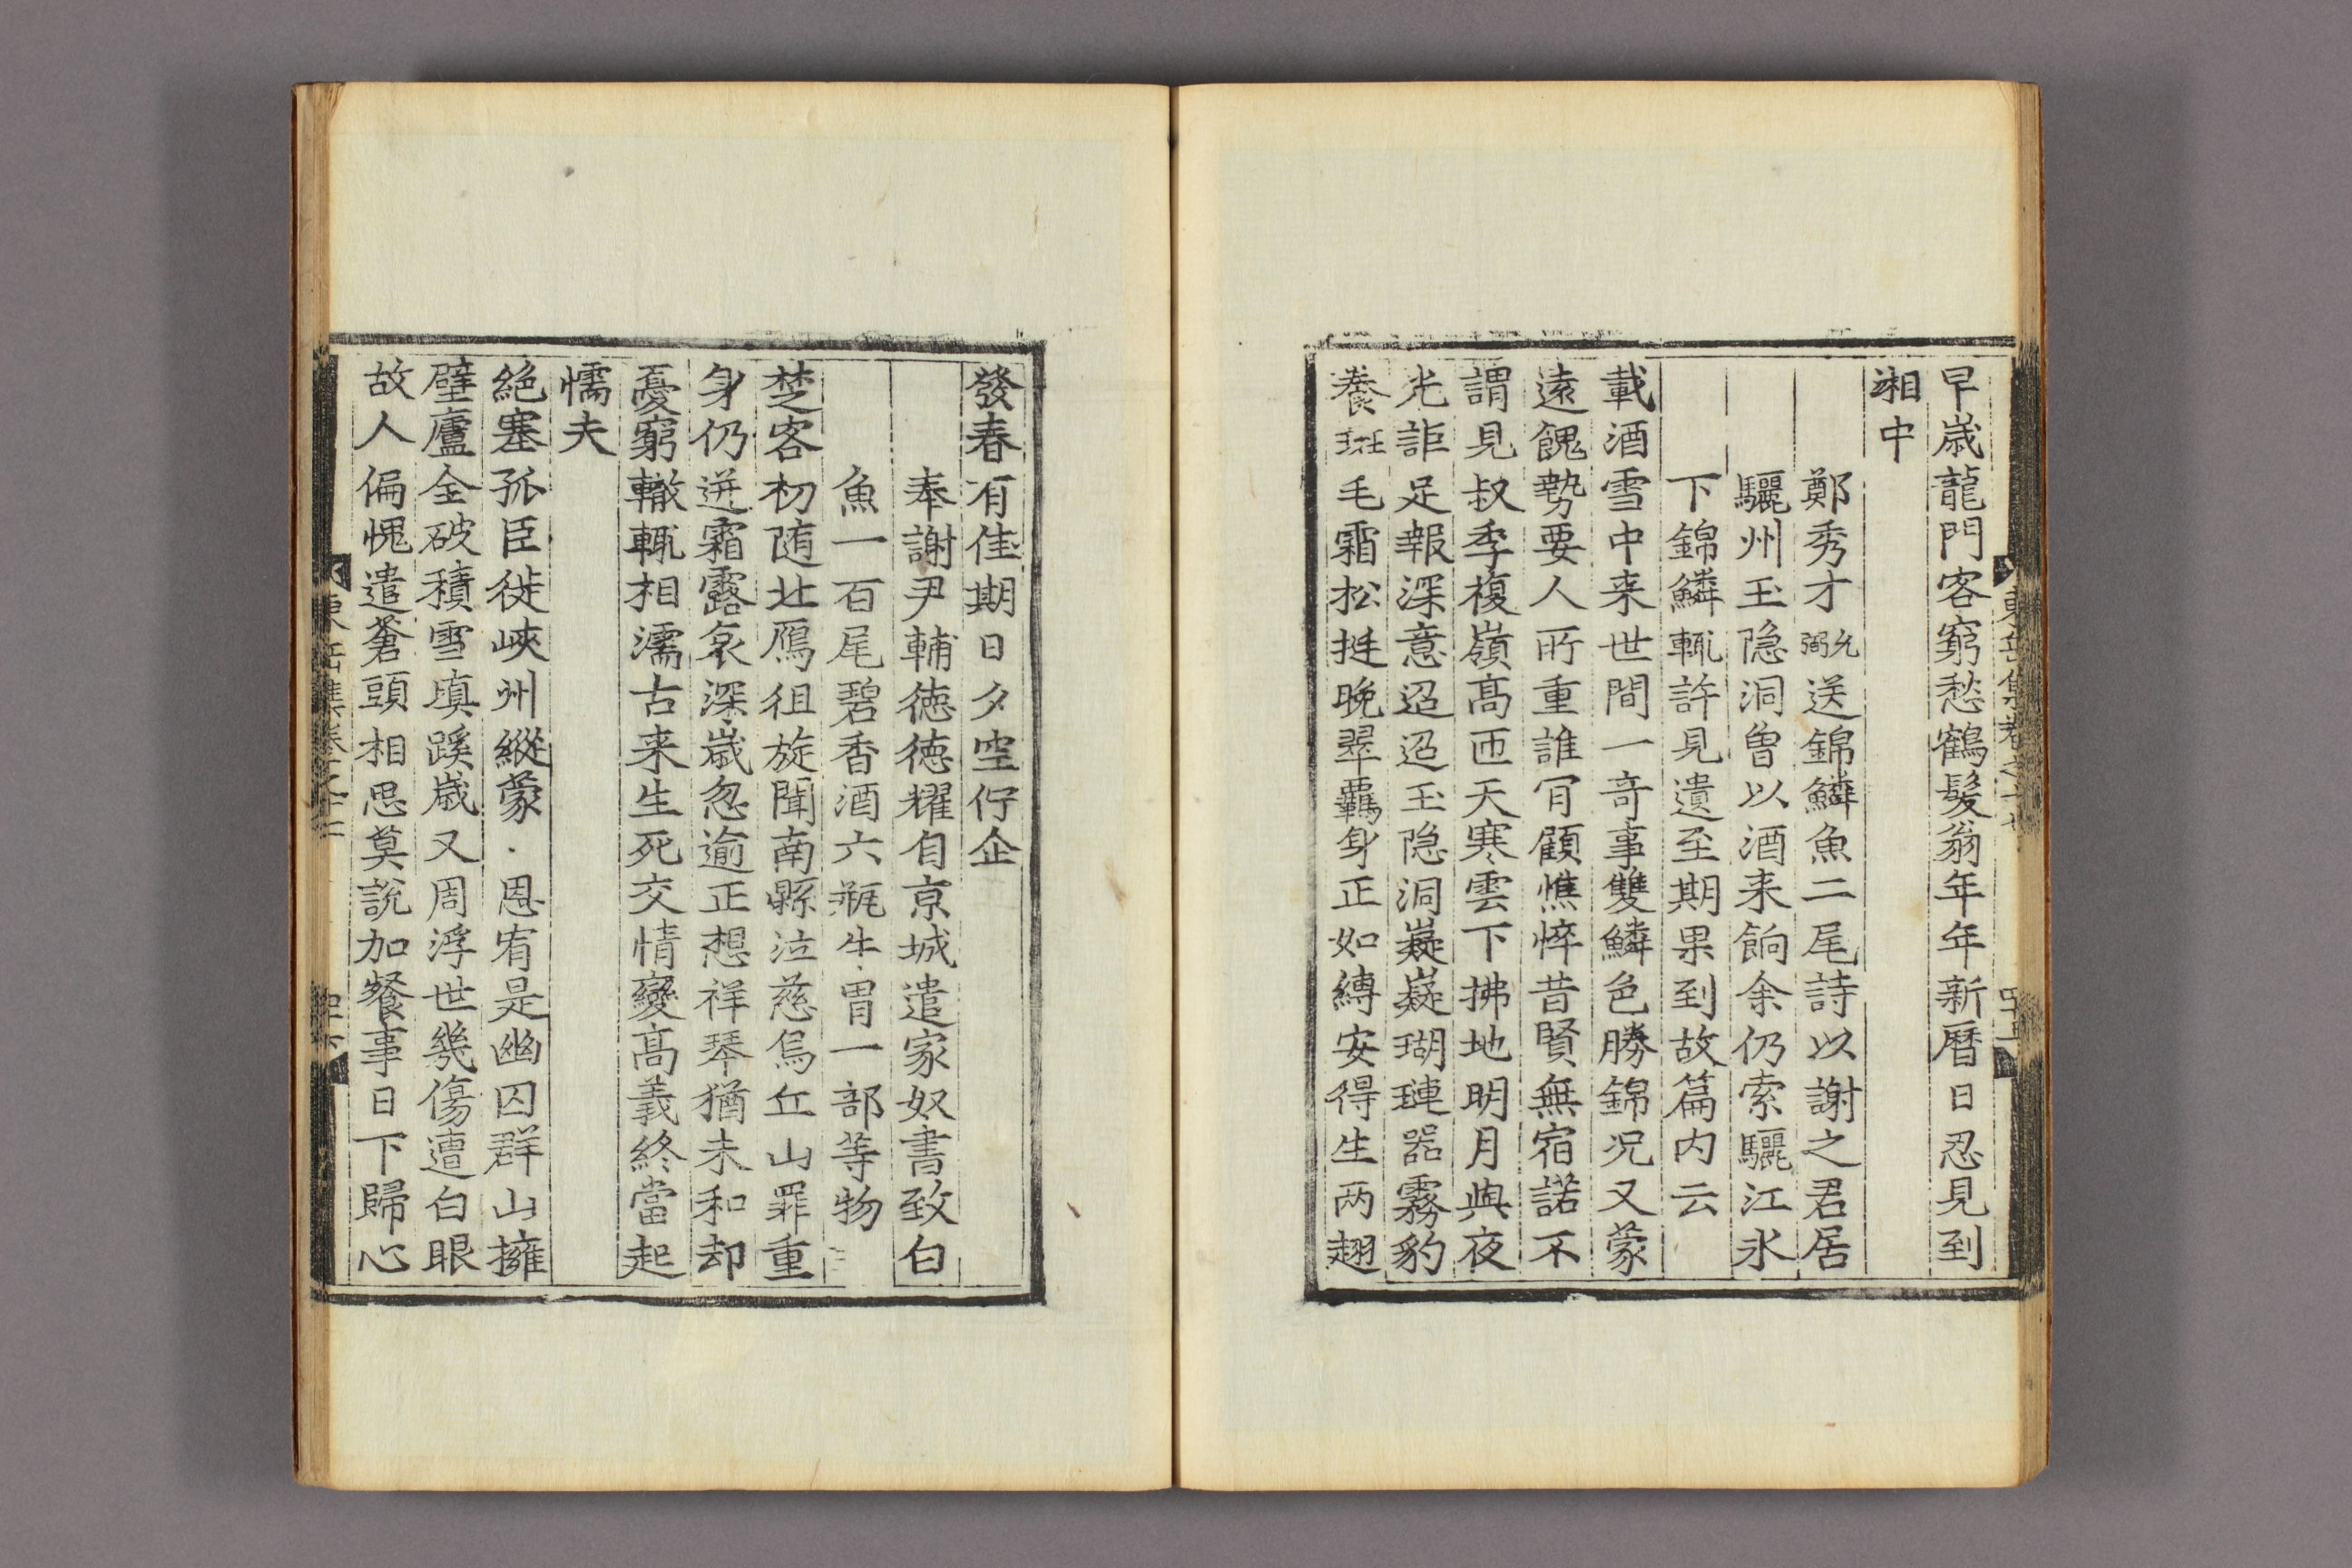 早歲龍門客窮愁鶴髮翁年年新曆日忍見到
湘中
鄭秀才允弼送錦鱗魚二尾詩以謝之君居
驪州玉隐洞曾以酒来餉余仍索驪江氷
下錦鱗輒許見遺至期果到故篇内云
載酒雪中来世間一奇事雙鱗色勝錦况又蒙
遠餽勢要人所重誰肎顧憔悴昔賢無宿諾不
謂見叔季複嶺高迊天寒雲下拂地明月與夜
光詎足報深意迢迢玉隐洞嶷嶷瑚璉器霧豹
養斑毛霜松挺晚翠羈身正如縛安得生两翅
發春有佳期日夕空佇企
奉謝尹輔徳徳耀自京城遣家奴書致白
魚一百尾碧香酒六瓶牛胃一部等物
楚客初随北鴈徂旋聞南縣泣慈烏丘山罪重
身仍逬霜露哀深歲忽逾正想祥琴猶未和却
憂窮轍輒相濡古来生死交情變高義終當起
懦夫
絶塞孤臣徙峽州縱蒙恩宥是幽囚群山擁
壁廬全破積雪塡蹊歲又周浮世幾傷遭白眼
故人偏愧遣蒼頭相思莫說加餐事日下歸心